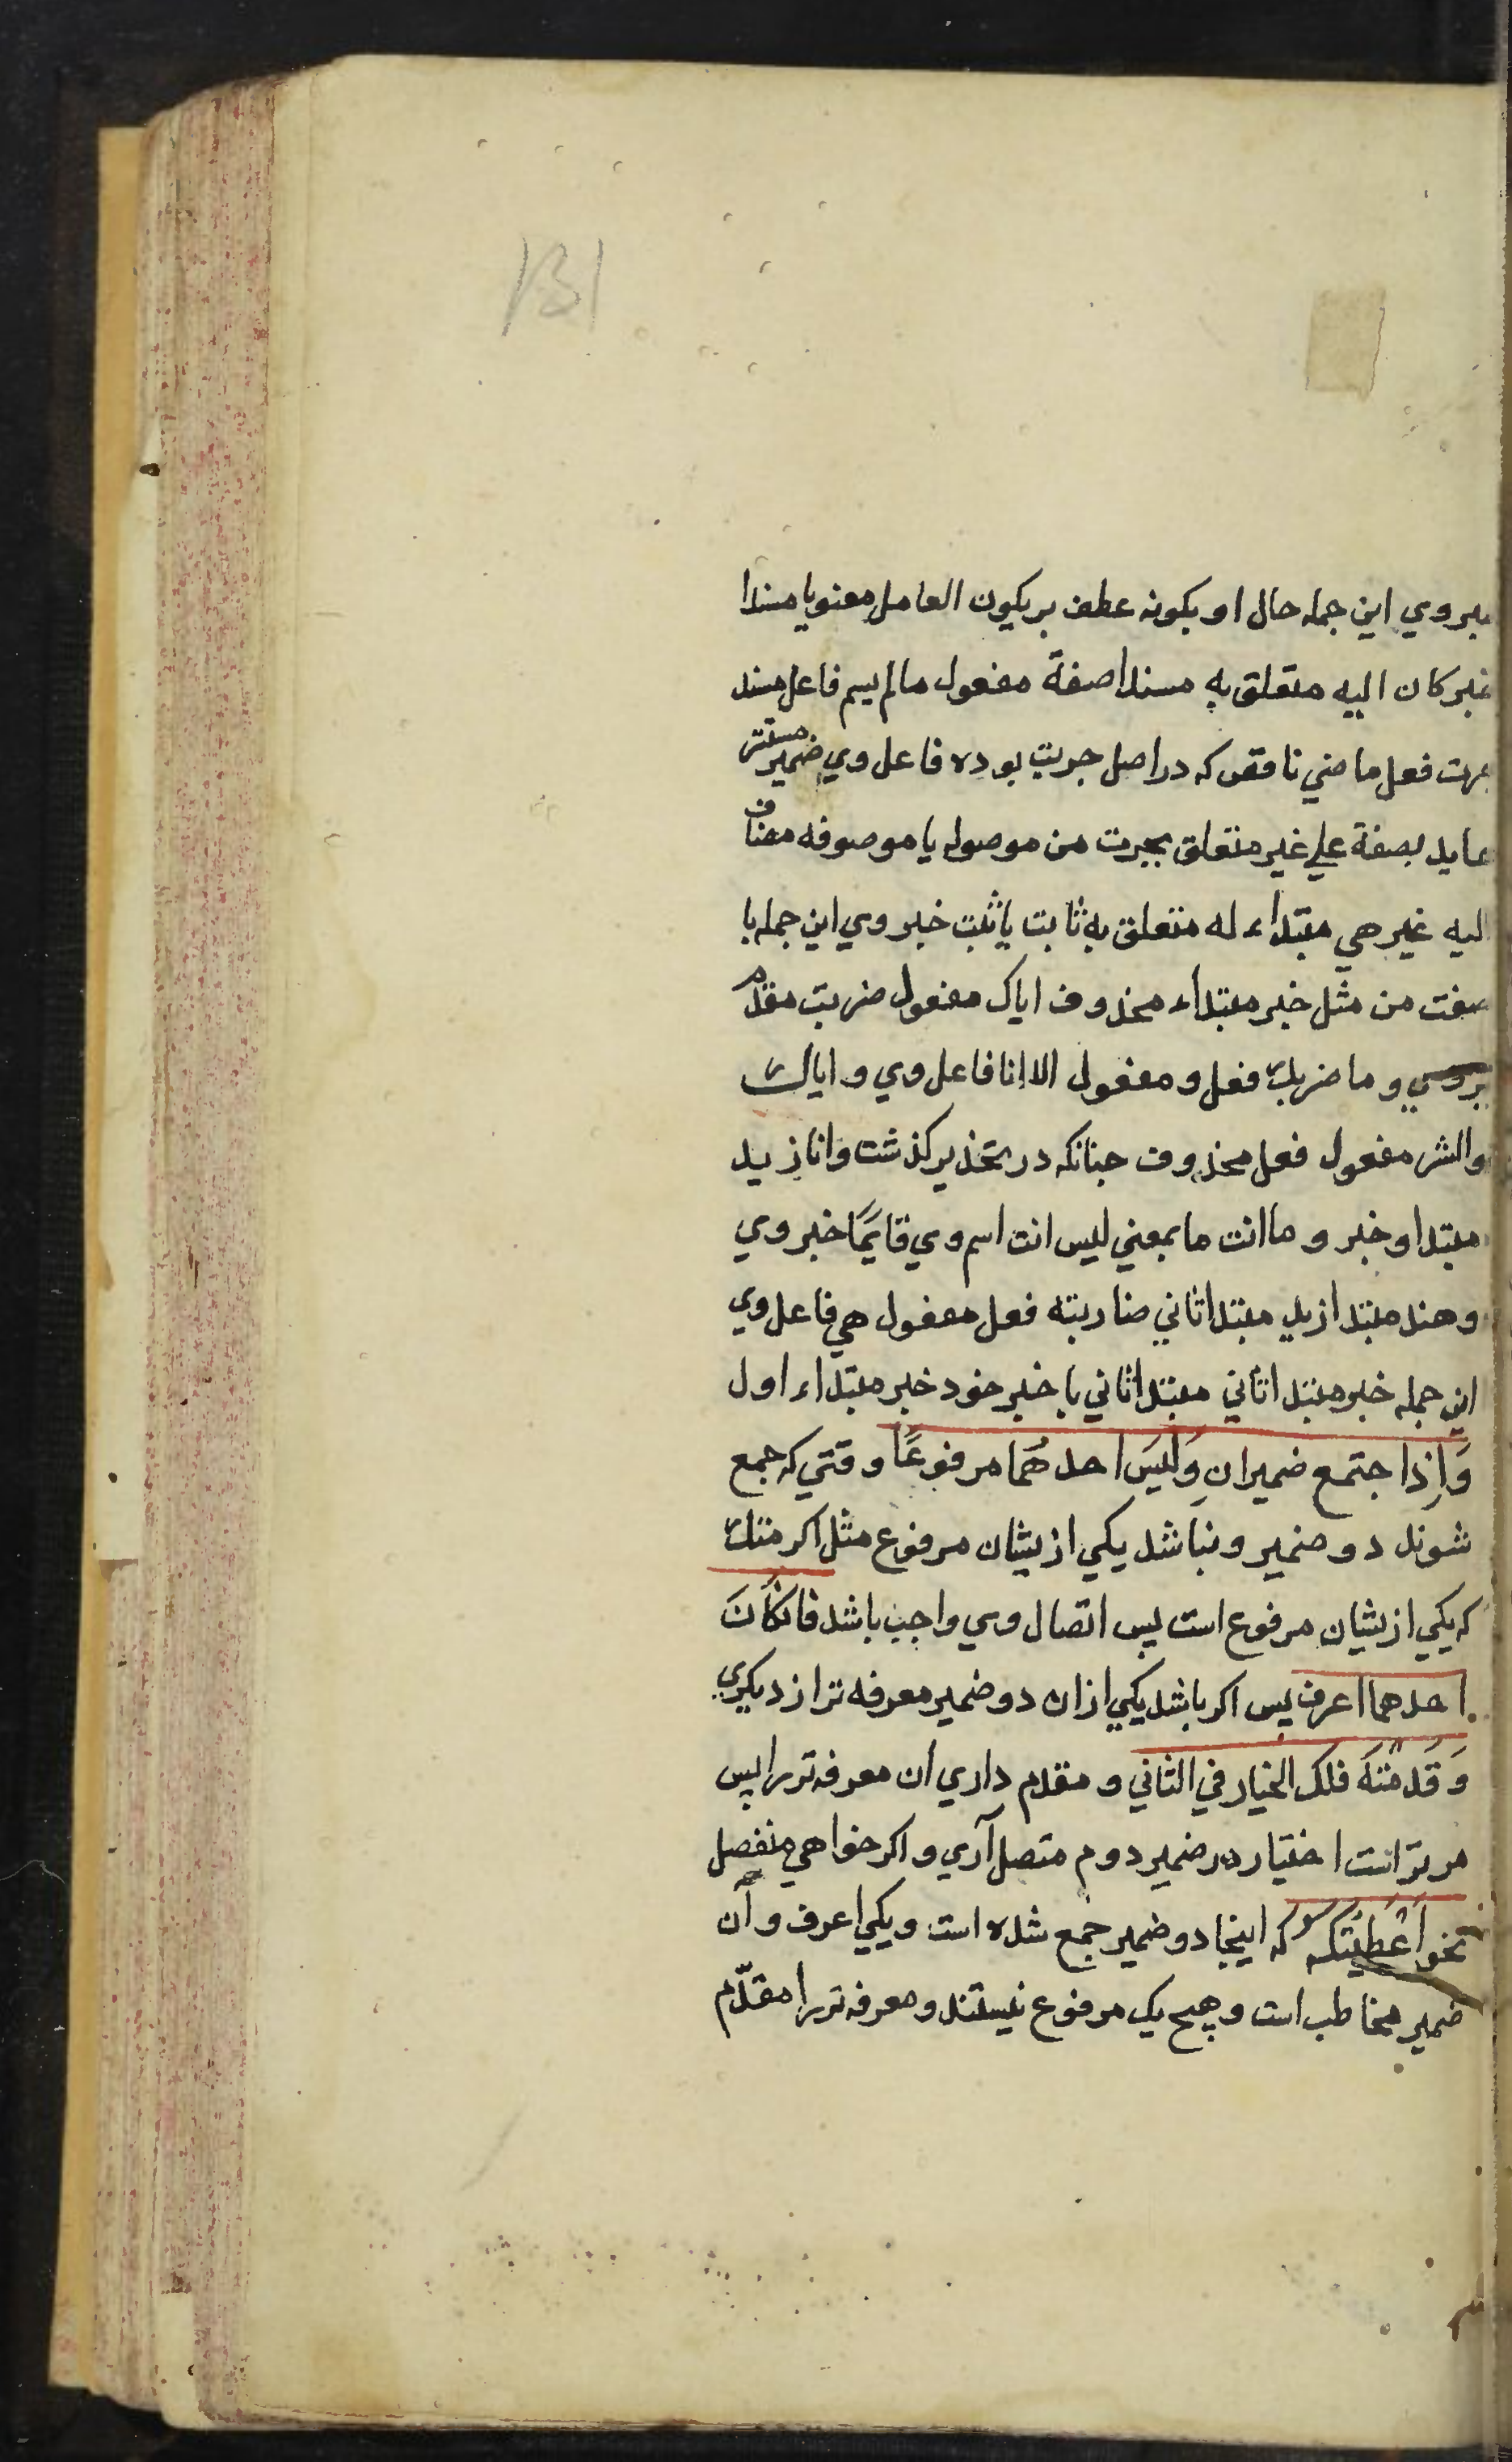 131
خبروي اين جمله حال او بكونه عطف بر بكون العامل معنويا مسندا
خبر كان اليه متعلق به مسندا صفة مفعول مالم يسم فاعل مسند
جرت فعل ماضي ناقص كه در اصل جريت بوده فاعل وي ضمير مستتر
عايد بصفة علي غير متعلق بجرت من موصوله يا موصوفه مضاف
اليه غير هي مبتداء له متعلق به ثابت يا ثبت خبر وي اين جمله يا
صفت من مثل خبر مبتداء محذوف اياك مفعول ضربت مقدم
بروي و ما ضربك فعل و مفعول الا انا فاعل وي و اياك
والشر مفعول فعل محذوف چنانكه در تحذير كذشت وانا زيد
مبتدا و خبر و ما انت ما بمعني ليس انت اسم وي قايمًا خبر وي
و هند مبتدا زيد مبتدا ثاني ضاربته فعل مفعول هي فاعل وي
اين جمله خبر مبتدا ثاني مبتدا ثاني با خبر خود خبر مبتداء اول
وَاِذا اجتمع ضميرانِ وَلَيسَ احدهُما مرفوعًا وقتي كه جمع
شوند دو ضمير و نباشد يكي ازيشان مرفوع مثل اكرمتك
كه يكي ازيشان مرفوع است پس اتصال وي واجب باشد فان كانَ
احدهما اعرف پس اكر باشد يكي ازان دو ضمير معرفه تر از ديكري
وَقَدمْتَهُ فلك الخيار في الثاني و مقدم داري ان معرفه تر را پس
مر تراست اختيار در ضمير دوم متصل آري و اكر خواهي منفصل
نحو اَعْطَيْتكَهُ كه اينجا دو ضمير جمع شده است و يكي اعرف و آن
ضمير مخاطب است و هيچ يك مرفوع نيستند و معرفه تر را مقدّم